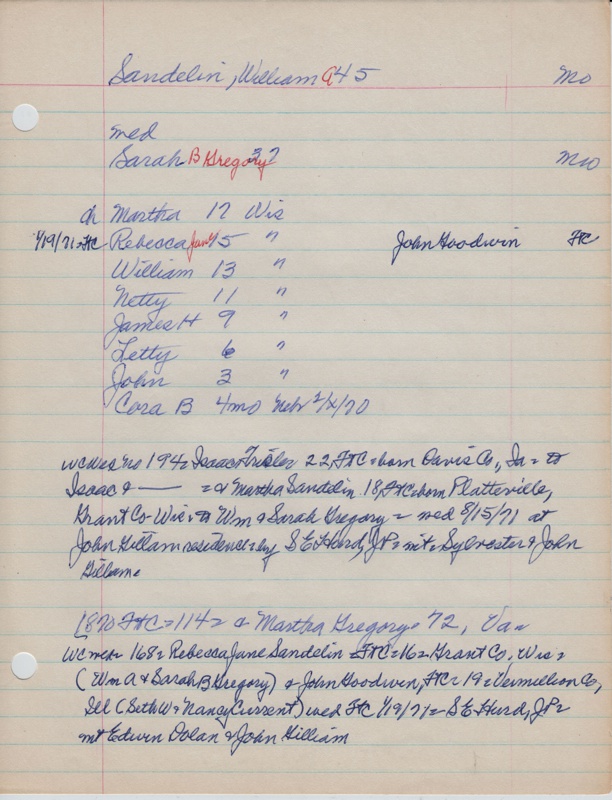 Sandelin, William A 45 Mo
med
Sarah B Gregory 37 Mo
ch Martha 17 Wis
1/19/71=FtC Rebecca Jane 15 " John Goodwin FtC
William 13 "
Netty 11 "
James H 9 "
Letty 6 "
John 3 "
Cora B 4mo Neb 2/x/70
WC No 194= Isaac 22, FtC=born Davis Co., Ia = to
Isaac & —— = & Martha Sandelin 18, FtC=born Platteville,
Grant Co-Wis= to Wm & Sarah Gregory = wed 8/15/71 at
John Gillam residence=by S E Hurd, JP= wit= Sylvester & John
Gillam=
1870 FtC=114= & Martha Gregory= 72, Va=
WC 168= Rebecca Jane Sandelin FtC=16= Grant Co, Wis=
(Wm A & Sarah B Gregory) & John Goodwin, FtC= 19= Vermillion Co,
Ill (Seth W & Nancy Current) wed FtC 1/19/71= S E Hurd, JP=
wit Edwin Dolan & John Gilliam